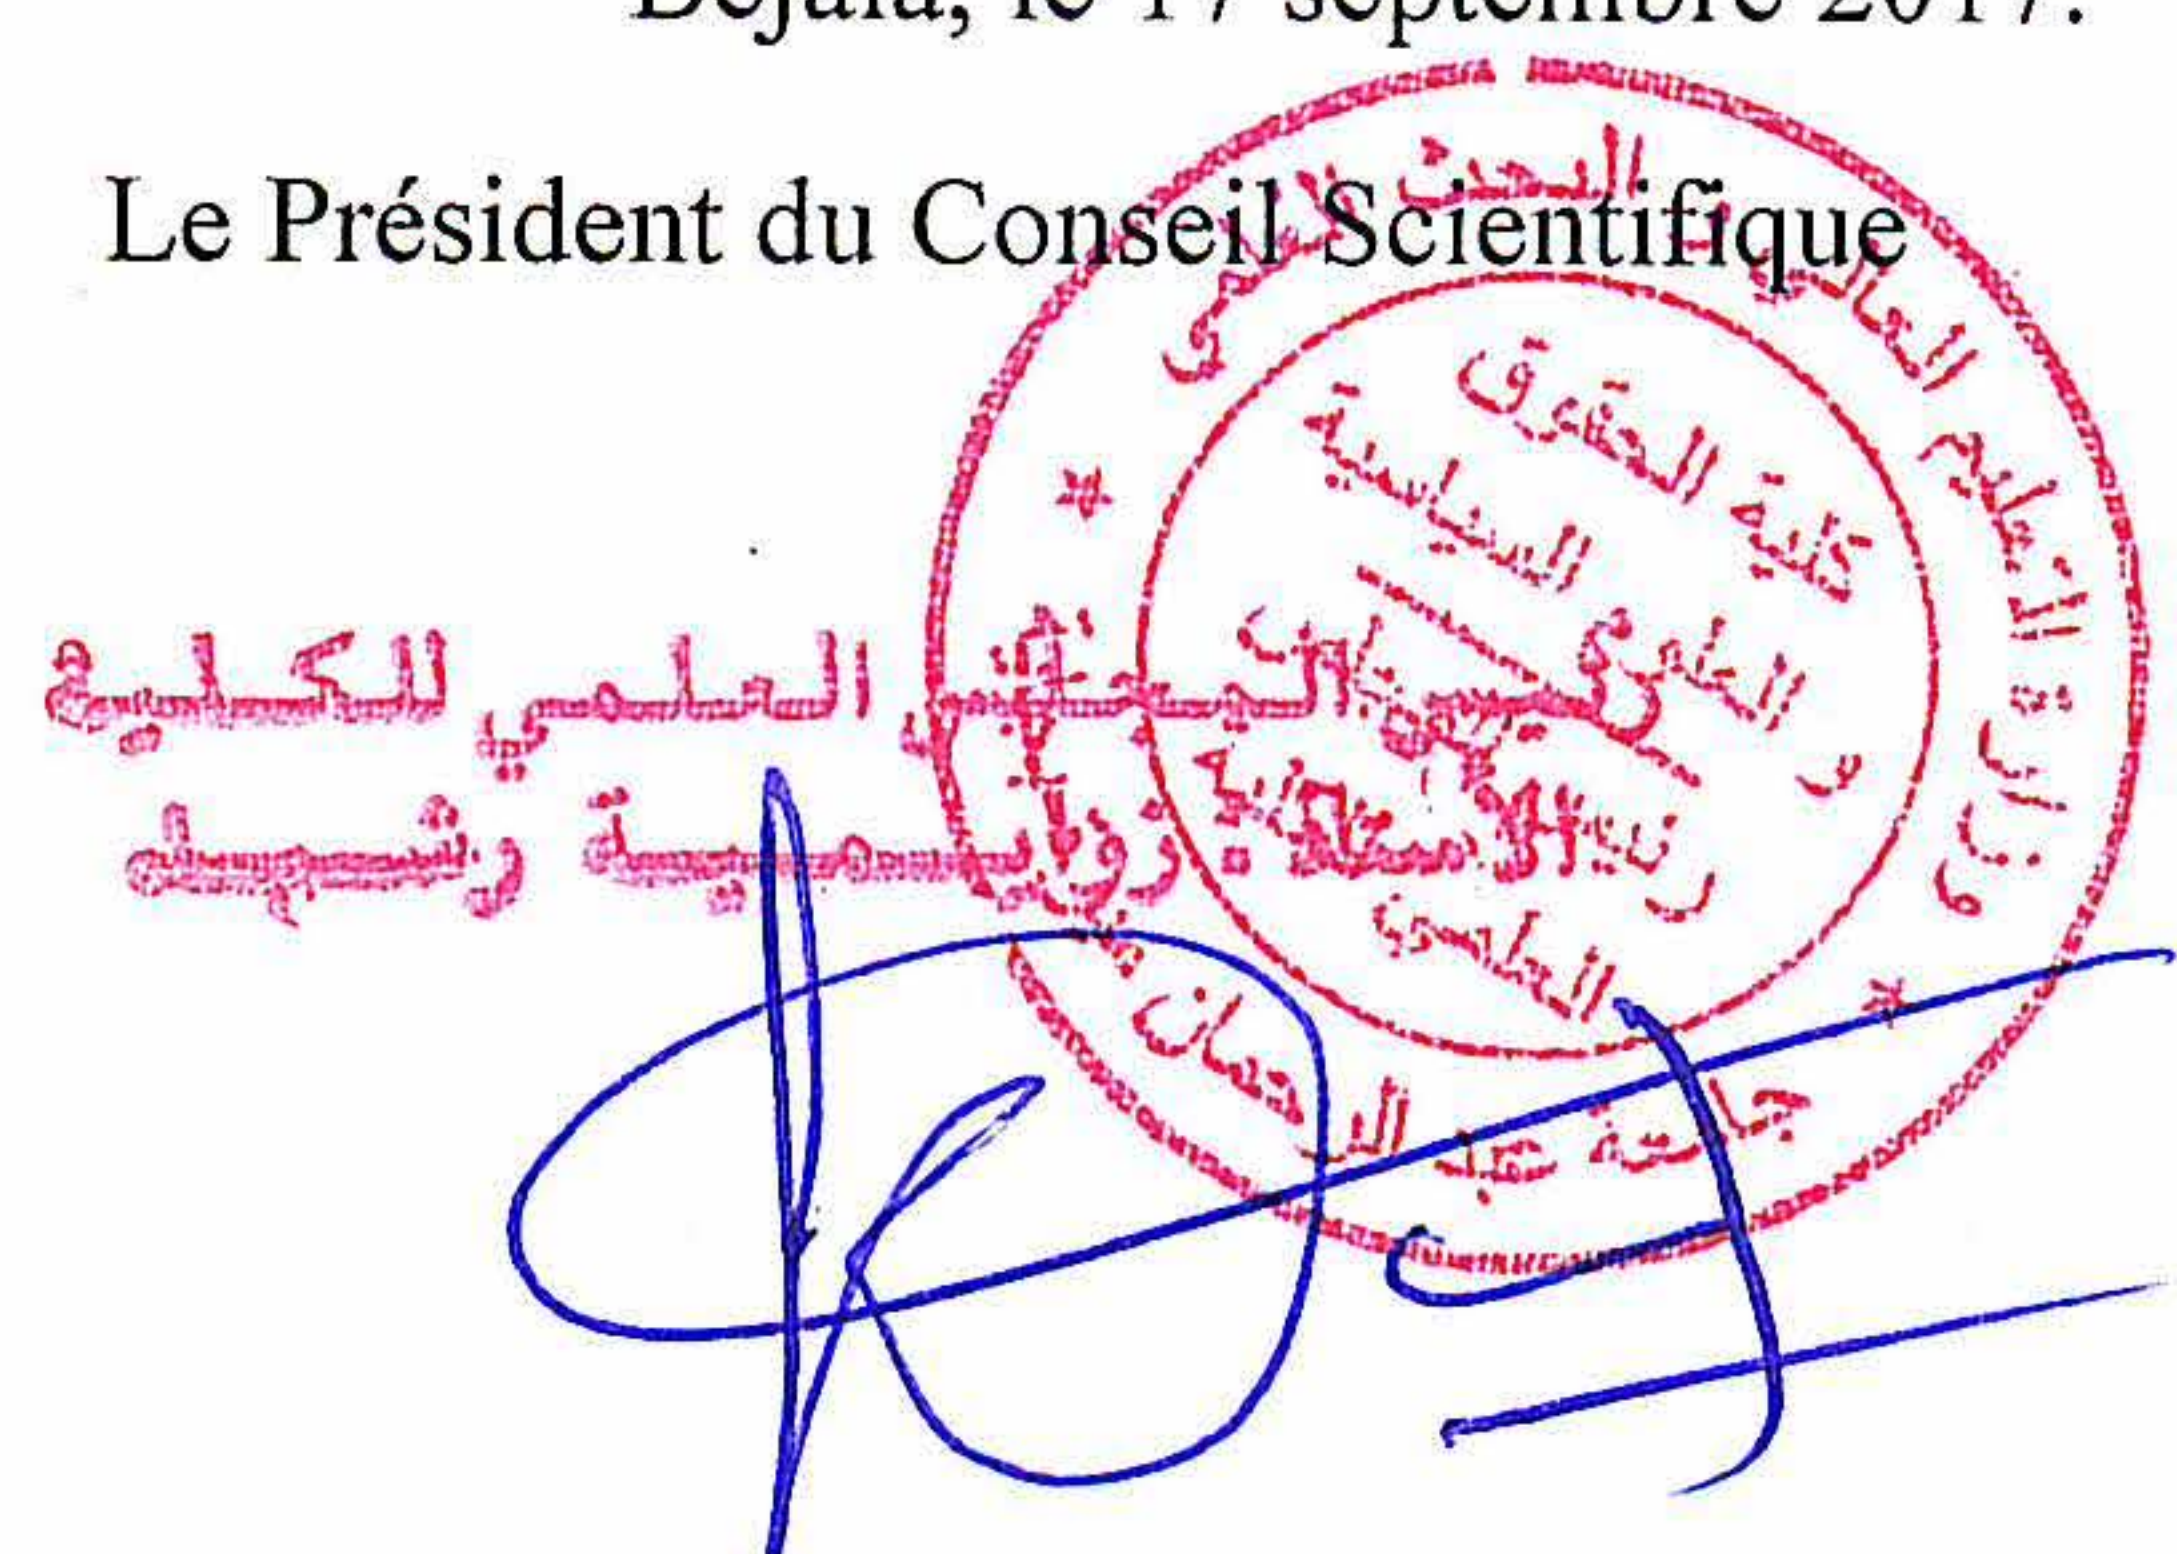 Béjaia, le 17 septembre 2017.
Le Président du Conseil Scientifique
وزارة التعليم العالي و البحث العلمي
كلية الحقوق
و العلوم السياسية
العلمي
جامعة عبد الرحمان
رئيس المجلس العلمي للكلية
الأستاذة :